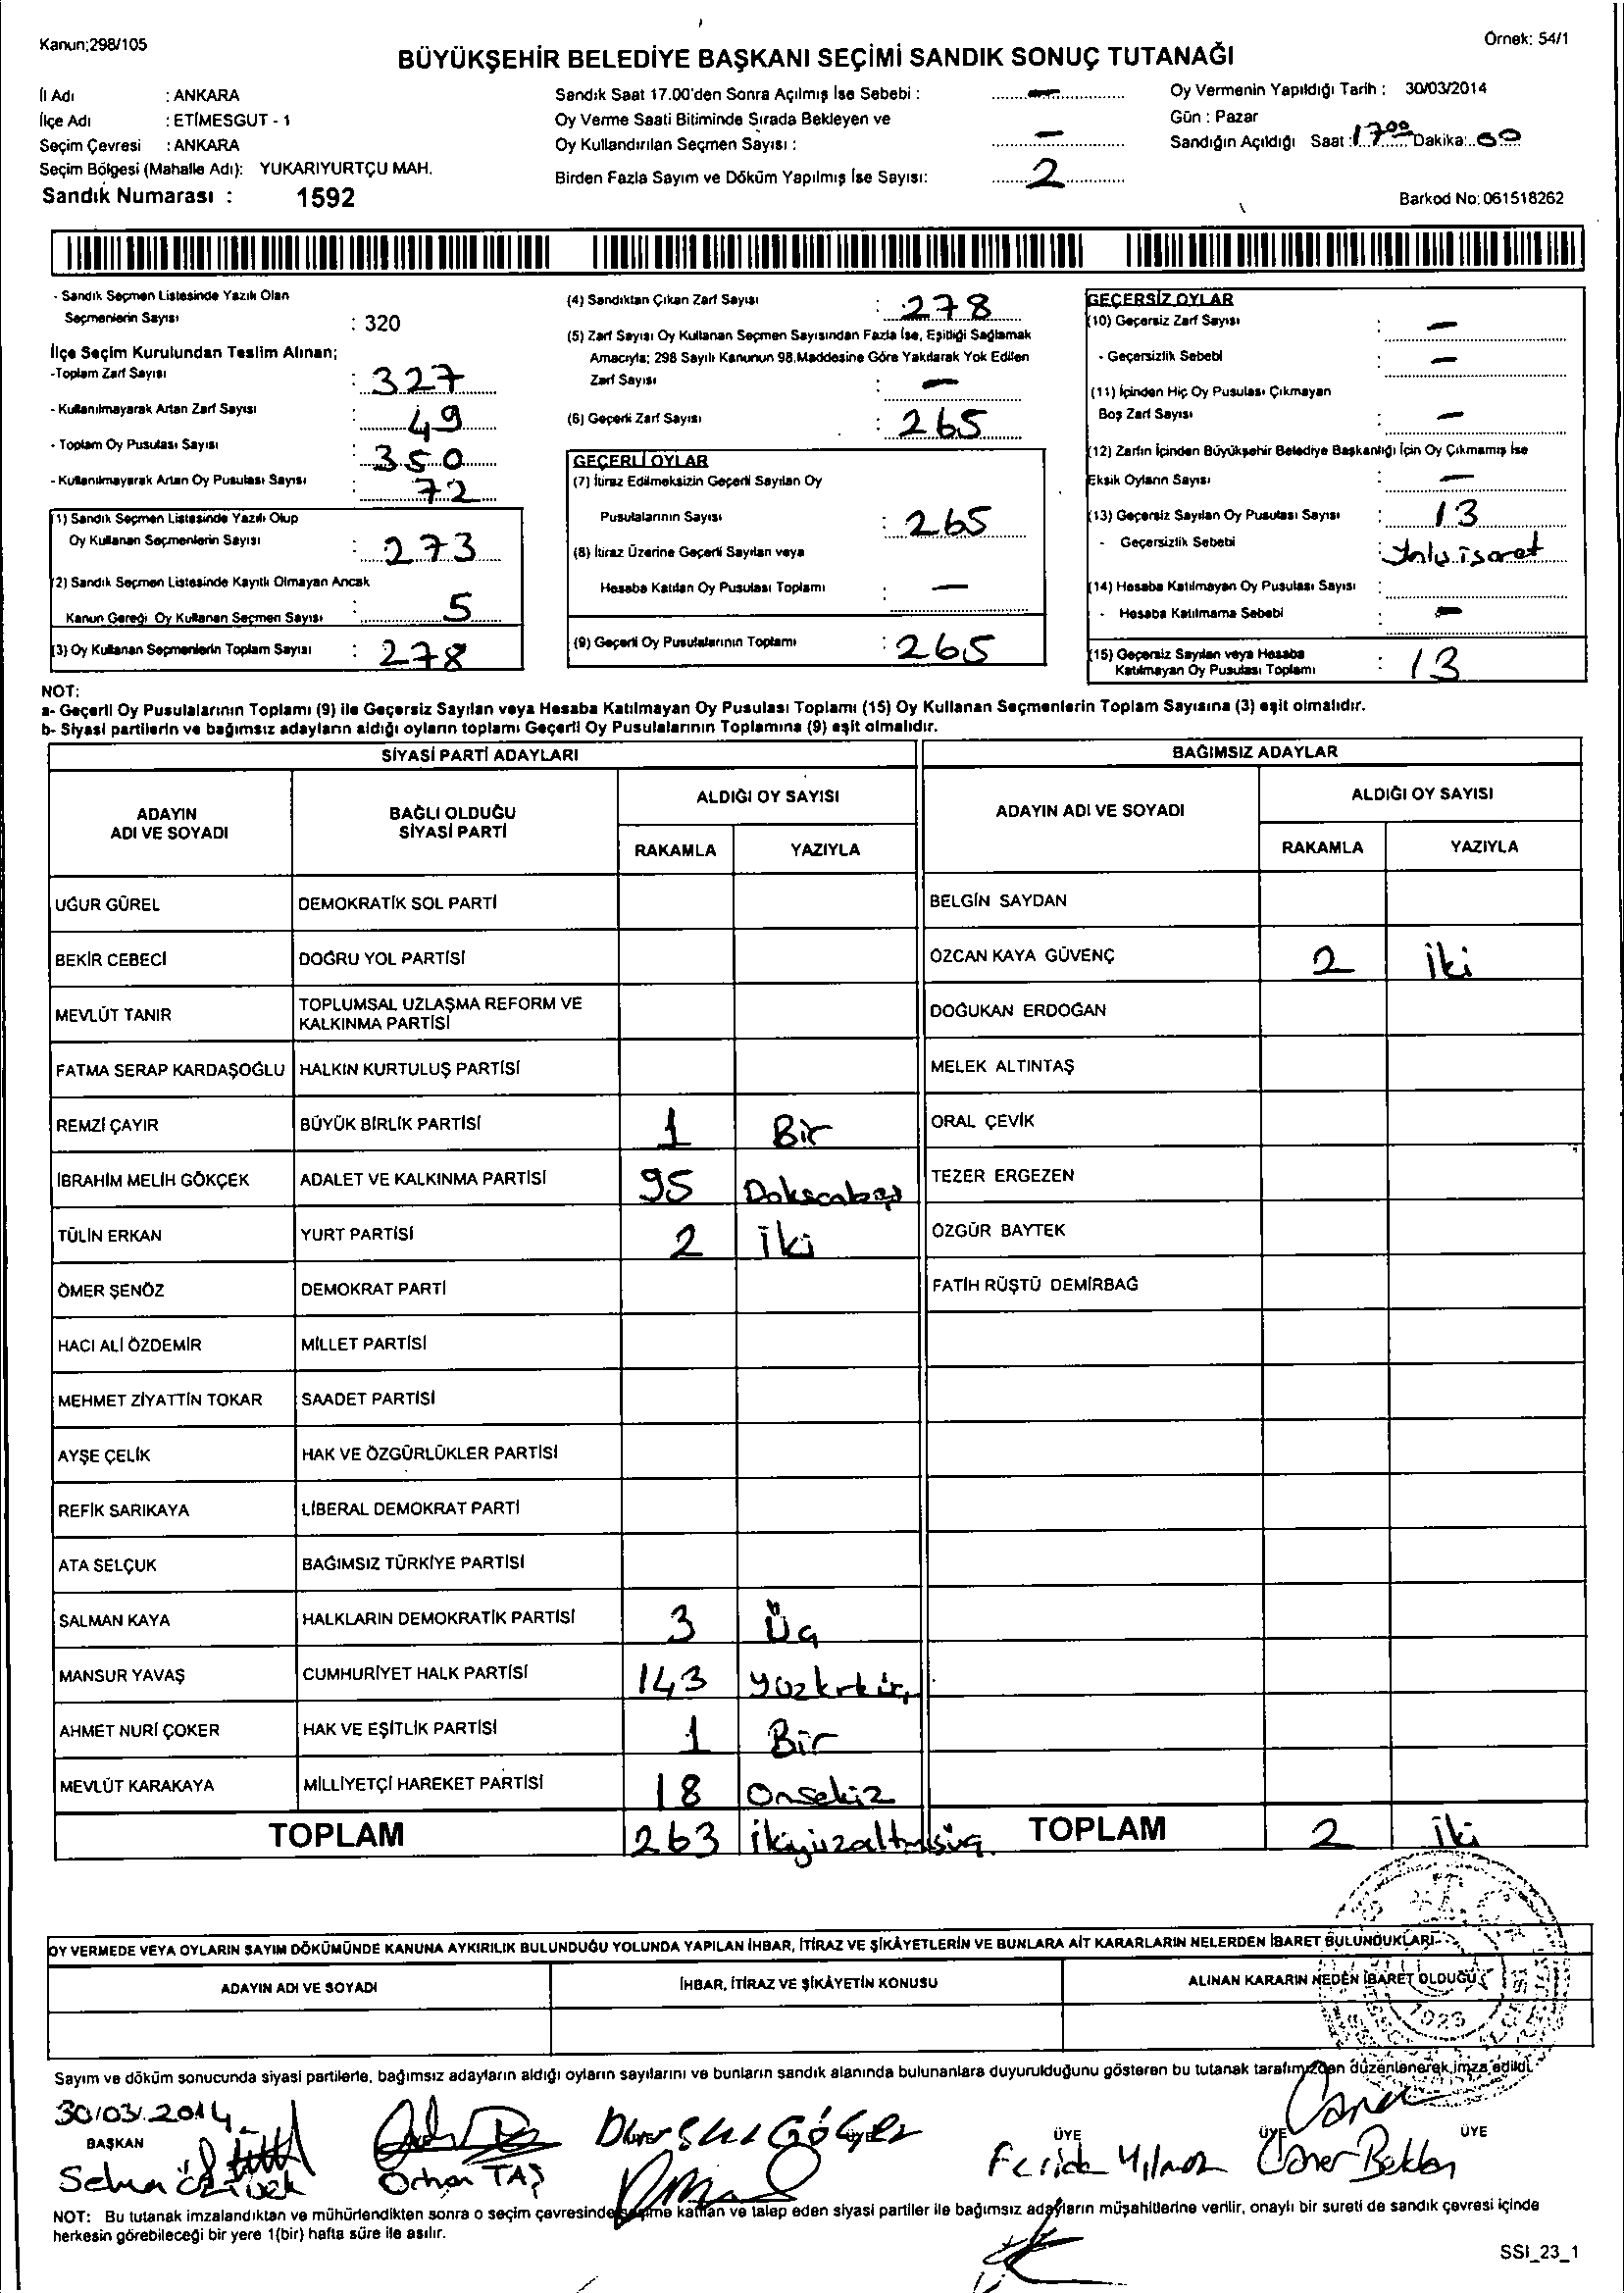 Kanun;298/105
Örnek: 54/1
BÜYÜKŞEHİR BELEDİYE BAŞKANI SEÇİMİ SANDIK SONUÇ TUTANAĞI
İl Adı : ANKARA
İlçe Adı : ETİMESGUT - 1
Seçim Çevresi : ANKARA
Seçim Bölgesi (Mahalle Adı): YUKARIYURTÇU MAH.
Sandık Numarası : 1592
Sandık Saat 17.00'den Sonra Açılmış İse Sebebi : —
Oy Verme Saati Bitiminde Sırada Bekleyen ve
Oy Kullandırılan Seçmen Sayısı : —
Birden Fazla Sayım ve Döküm Yapılmış İse Sayısı: 2
Oy Vermenin Yapıldığı Tarih : 30/03/2014
Gün : Pazar
Sandığın Açıldığı Saat : 17 00 Dakika: 00
Barkod No: 061518262
- Sandık Seçmen Listesinde Yazılı Olan
Seçmenlerin Sayısı : 320
İlçe Seçim Kurulundan Teslim Alınan;
-Toplam Zarf Sayısı : 327
- Kullanılmayarak Artan Zarf Sayısı : 49
- Toplam Oy Pusulası Sayısı : 350
- Kullanılmayarak Artan Oy Pusulası Sayısı : 72
(1) Sandık Seçmen Listesinde Yazılı Olup
Oy Kullanan Seçmenlerin Sayısı : 273
(2) Sandık Seçmen Listesinde Kayıtlı Olmayan Ancak
Kanun Gereği Oy Kullanan Seçmen Sayısı : 5
(3) Oy Kullanan Seçmenlerin Toplam Sayısı : 278
(4) Sandıktan Çıkan Zarf Sayısı : 278
(5) Zarf Sayısı Oy Kullanan Seçmen Sayısından Fazla İse, Eşitliği Sağlamak
Amacıyla; 298 Sayılı Kanunun 98.Maddesine Göre Yakılarak Yok Edilen
Zarf Sayısı : —
(6) Geçerli Zarf Sayısı : 265
GEÇERLİ OYLAR
(7) İtiraz Edilmeksizin Geçerli Sayılan Oy
Pusulalarının Sayısı : 265
(8) İtiraz Üzerine Geçerli Sayılan veya
Hesaba Katılan Oy Pusulası Toplamı : —
(9) Geçerli Oy Pusulalarının Toplamı : 265
GEÇERSİZ OYLAR
(10) Geçersiz Zarf Sayısı : —
- Geçersizlik Sebebi : —
(11) İçinden Hiç Oy Pusulası Çıkmayan
Boş Zarf Sayısı : —
(12) Zarfın İçinden Büyükşehir Belediye Başkanlığı İçin Oy Çıkmamış İse
Eksik Oyların Sayısı : —
(13) Geçersiz Sayılan Oy Pusulası Sayısı : 13
- Geçersizlik Sebebi : isaret
(14) Hesaba Katılmayan Oy Pusulası Sayısı :
- Hesaba Katılmama Sebebi : —
(15) Geçersiz Sayılan veya Hesaba
Katılmayan Oy Pusulası Toplamı : 13
NOT:
a- Geçerli Oy Pusulalarının Toplamı (9) ile Geçersiz Sayılan veya Hesaba Katılmayan Oy Pusulası Toplamı (15) Oy Kullanan Seçmenlerin Toplam Sayısına (3) eşit olmalıdır.
b- Siyasi partilerin ve bağımsız adayların aldığı oyların toplamı Geçerli Oy Pusulalarının Toplamına (9) eşit olmalıdır.
SİYASİ PARTİ ADAYLARI
ADAYIN ADI VE SOYADI
BAĞLI OLDUĞU SİYASİ PARTİ
ALDIĞI OY SAYISI
RAKAMLA YAZIYLA
UĞUR GÜREL DEMOKRATİK SOL PARTİ
BEKİR CEBECİ DOĞRU YOL PARTİSİ
MEVLÜT TANIR TOPLUMSAL UZLAŞMA REFORM VE KALKINMA PARTİSİ
FATMA SERAP KARDAŞOĞLU HALKIN KURTULUŞ PARTİSİ
REMZİ ÇAYIR BÜYÜK BİRLİK PARTİSİ 1 Bir
İBRAHİM MELİH GÖKÇEK ADALET VE KALKINMA PARTİSİ 95 Doksanbeş
TÜLİN ERKAN YURT PARTİSİ 2 İki
ÖMER ŞENÖZ DEMOKRAT PARTİ
HACI ALİ ÖZDEMİR MİLLET PARTİSİ
MEHMET ZİYATTİN TOKAR SAADET PARTİSİ
AYŞE ÇELİK HAK VE ÖZGÜRLÜKLER PARTİSİ
REFİK SARIKAYA LİBERAL DEMOKRAT PARTİ
ATA SELÇUK BAĞIMSIZ TÜRKİYE PARTİSİ
SALMAN KAYA HALKLARIN DEMOKRATİK PARTİSİ 3 Üç
MANSUR YAVAŞ CUMHURİYET HALK PARTİSİ 143 yüzkrküç
AHMET NURİ ÇOKER HAK VE EŞİTLİK PARTİSİ 1 Bir
MEVLÜT KARAKAYA MİLLİYETÇİ HAREKET PARTİSİ 18 Onsekiz
TOPLAM 263 ikiyüzaltmışüç
BAĞIMSIZ ADAYLAR
ADAYIN ADI VE SOYADI
ALDIĞI OY SAYISI
RAKAMLA YAZIYLA
BELGİN SAYDAN
ÖZCAN KAYA GÜVENÇ 2 İki
DOĞUKAN ERDOĞAN
MELEK ALTINTAŞ
ORAL ÇEVİK
TEZER ERGEZEN
ÖZGÜR BAYTEK
FATİH RÜŞTÜ DEMİRBAĞ
TOPLAM 2 İki
OY VERMEDE VEYA OYLARIN SAYIM DÖKÜMÜNDE KANUNA AYKIRILIK BULUNDUĞU YOLUNDA YAPILAN İHBAR, İTİRAZ VE ŞİKÂYETLERİN VE BUNLARA AİT KARARLARIN NELERDEN İBARET BULUNDUKLARI
ADAYIN ADI VE SOYADI İHBAR, İTİRAZ VE ŞİKÂYETİN KONUSU ALINAN KARARIN NEDEN İBARET OLDUĞU
1923
Sayım ve döküm sonucunda siyasi partilerle, bağımsız adayların aldığı oyların sayılarını ve bunların sandık alanında bulunanlara duyurulduğunu gösteren bu tutanak tarafımızdan düzenlenerek imza edildi.
30/03/2014
BAŞKAN ÜYE ÜYE ÜYE ÜYE
Orhan TAŞ
Dursun GÖÇER
Feride Yılmaz
Caner
NOT: Bu tutanak imzalandıktan ve mühürlendikten sonra o seçim çevresinde seçime katılan ve talep eden siyasi partiler ile bağımsız adayların müşahitlerine verilir, onaylı bir sureti de sandık çevresi içinde
herkesin görebileceği bir yere 1(bir) hafta süre ile asılır.
SSI_23_1